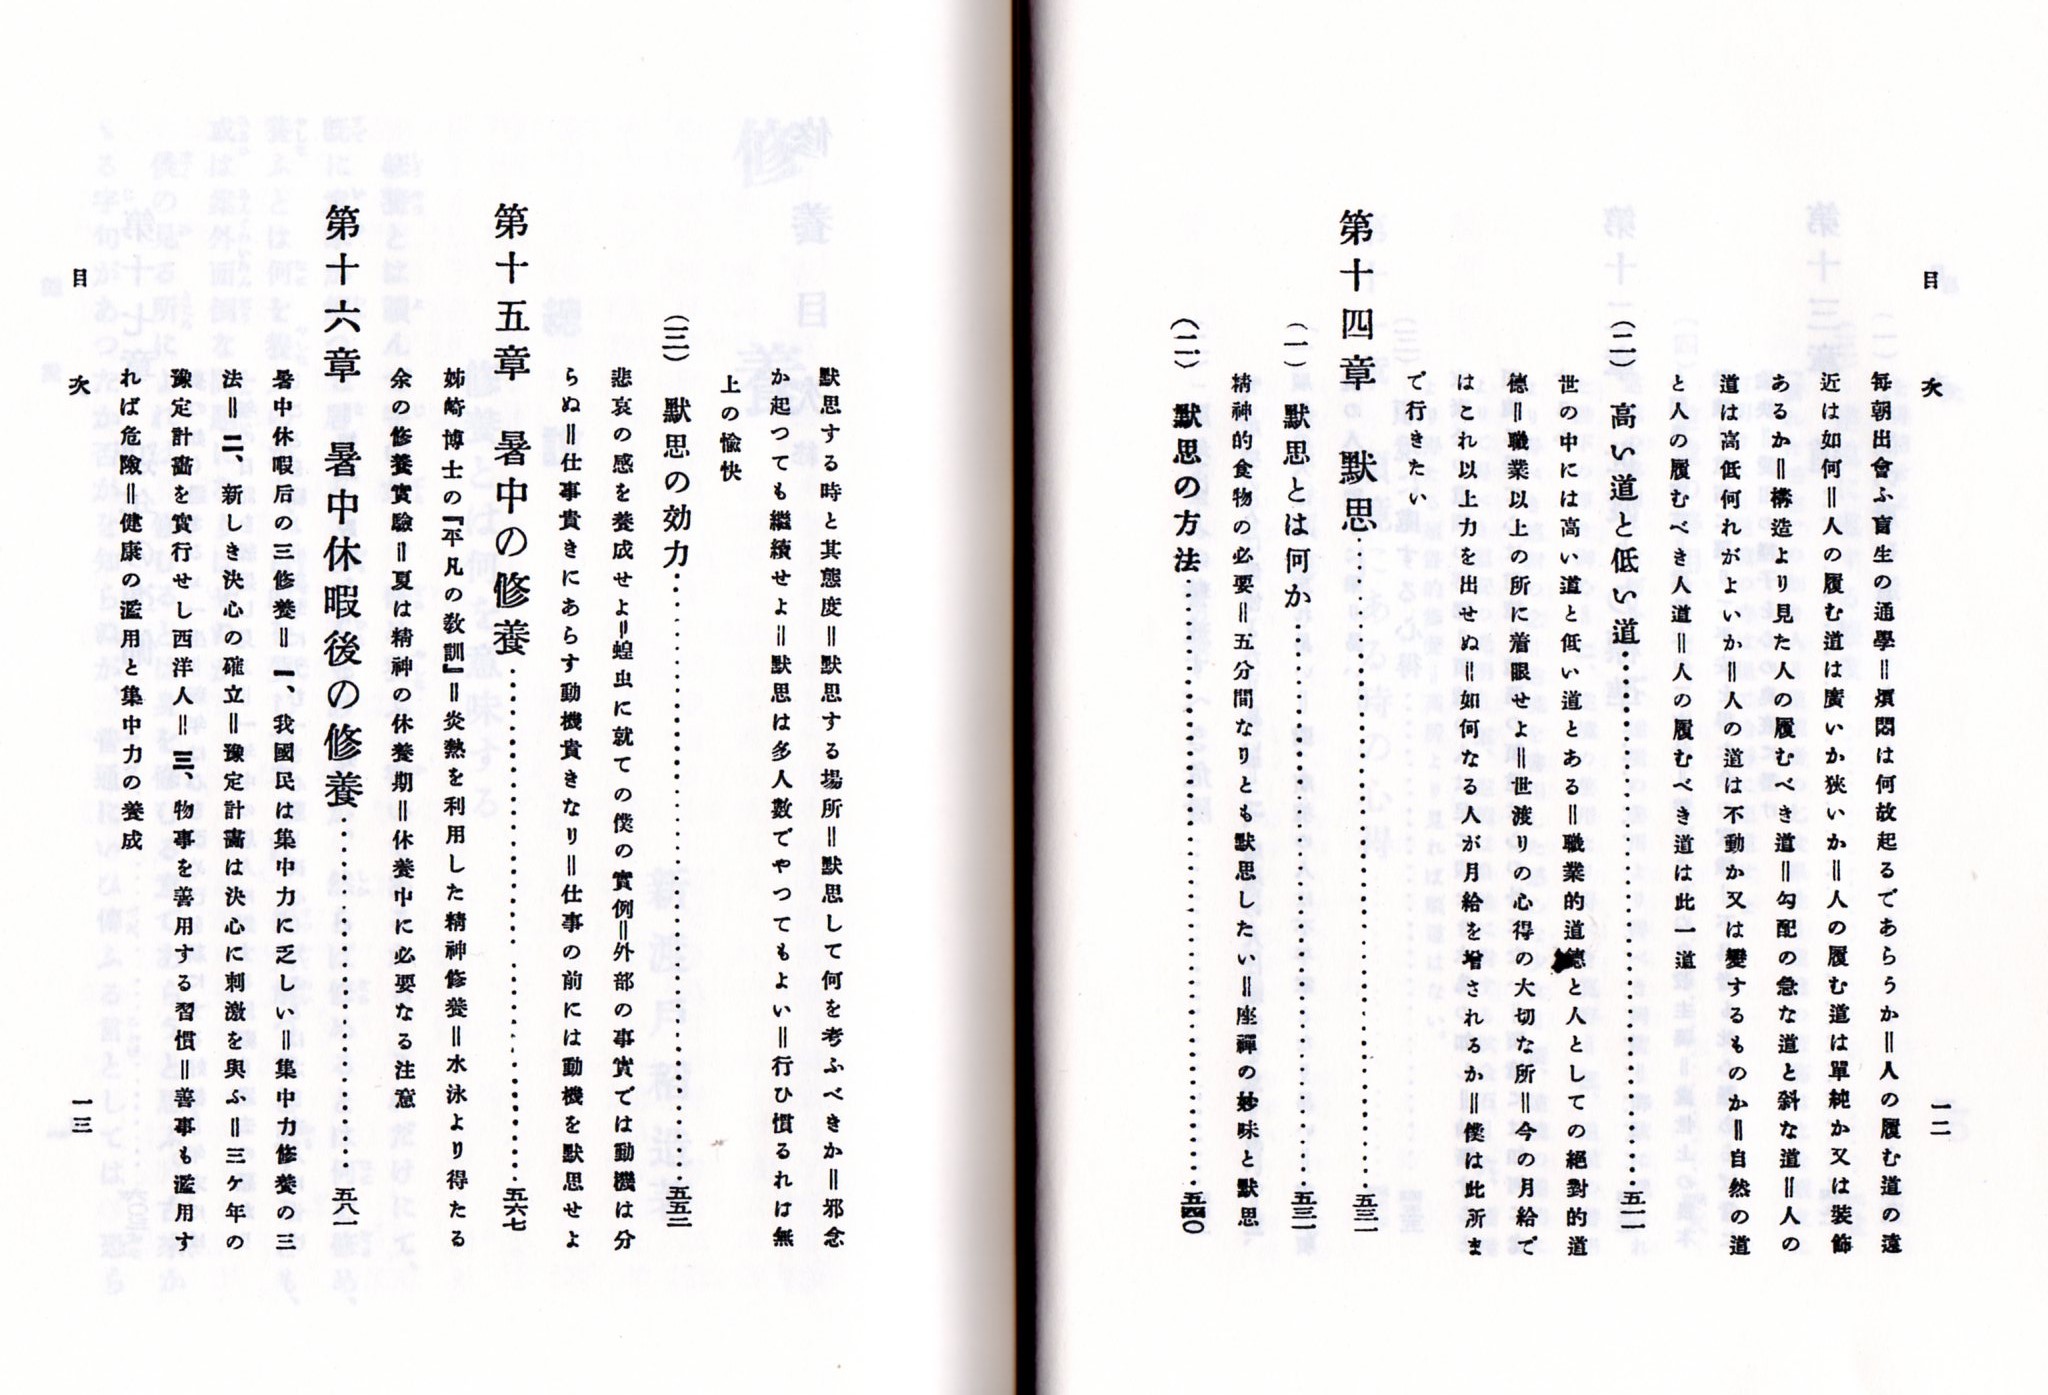 目次
一二
毎朝出會ふ盲生の通學＝煩悶は何故起るであらうか＝人の履む道の遠
近は如何＝人の履む道は廣いか狹いか＝人の履む道は單純か又は裝飾
あるか＝構造より見た人の履むべき道＝勾配の急な道と斜な道＝人の
道は高低何れがよいか＝人の道は不動か又は變するものか＝自然の道
と人の履むべき人道＝人の履むべき道は此一道
(二) 高い道と低い道……五二一
世の中には高い道と低い道とある＝職業的道德と人としての絕對的道
德＝職業以上の所に着眼せよ＝世渡りの心得の大切な所＝今の月給で
はこれ以上力を出せぬ＝如何なる人が月給を增されるか＝僕は此所ま
で行きたい
第十四章 默思……五三一
(一) 默思とは何か……五三一
精神的食物の必要＝五分間なりとも默思したい＝座禪の妙味と默思
(二) 默思の方法……五四〇
默思する時と其態度＝默思する場所＝默思して何を考ふべきか＝邪念
か起つても繼續せよ＝默思は多人數でやつてもよい＝行ひ慣るれは無
上の愉快
(三) 默思の効力……五五二
悲哀の感を養成せよ＝蝗虫に就ての僕の實例＝外部の事實では動機は分
らぬ＝仕事貴きにあらす動機貴きなり＝仕事の前には動機を默思せよ
第十五章 暑中の修養……五六七
姊崎博士の『平凡の敎訓』＝炎熱を利用した精神修養＝水泳より得たる
余の修養實驗＝夏は精神の休養期＝休養中に必要なる注意
第十六章 暑中休暇後の修養……五八一
暑中休暇后の三修養＝一、我國民は集中力に乏しい＝集中力修養の三
法＝二、新しき決心の確立＝豫定計畵は決心に刺激を與ふ＝三ヶ年の
豫定計畵を實行せし西洋人＝三、物事を善用する習慣＝善事も濫用す
れば危險＝健康の濫用と集中力の養成
目次
一三